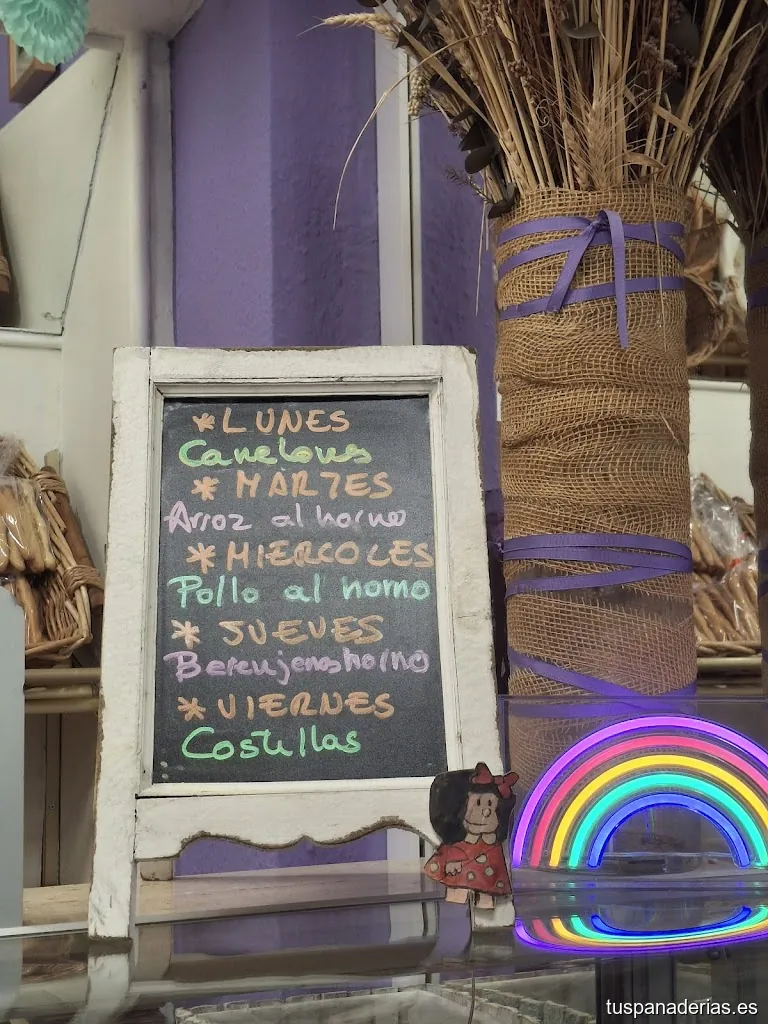 *LUNES
Canelones
*MARTES
Arroz al horno
*MIERCOLES
Pollo al horno
*JUEVES
Berenjenas horno
*VIERNES
Costillas
tuspanaderias.es